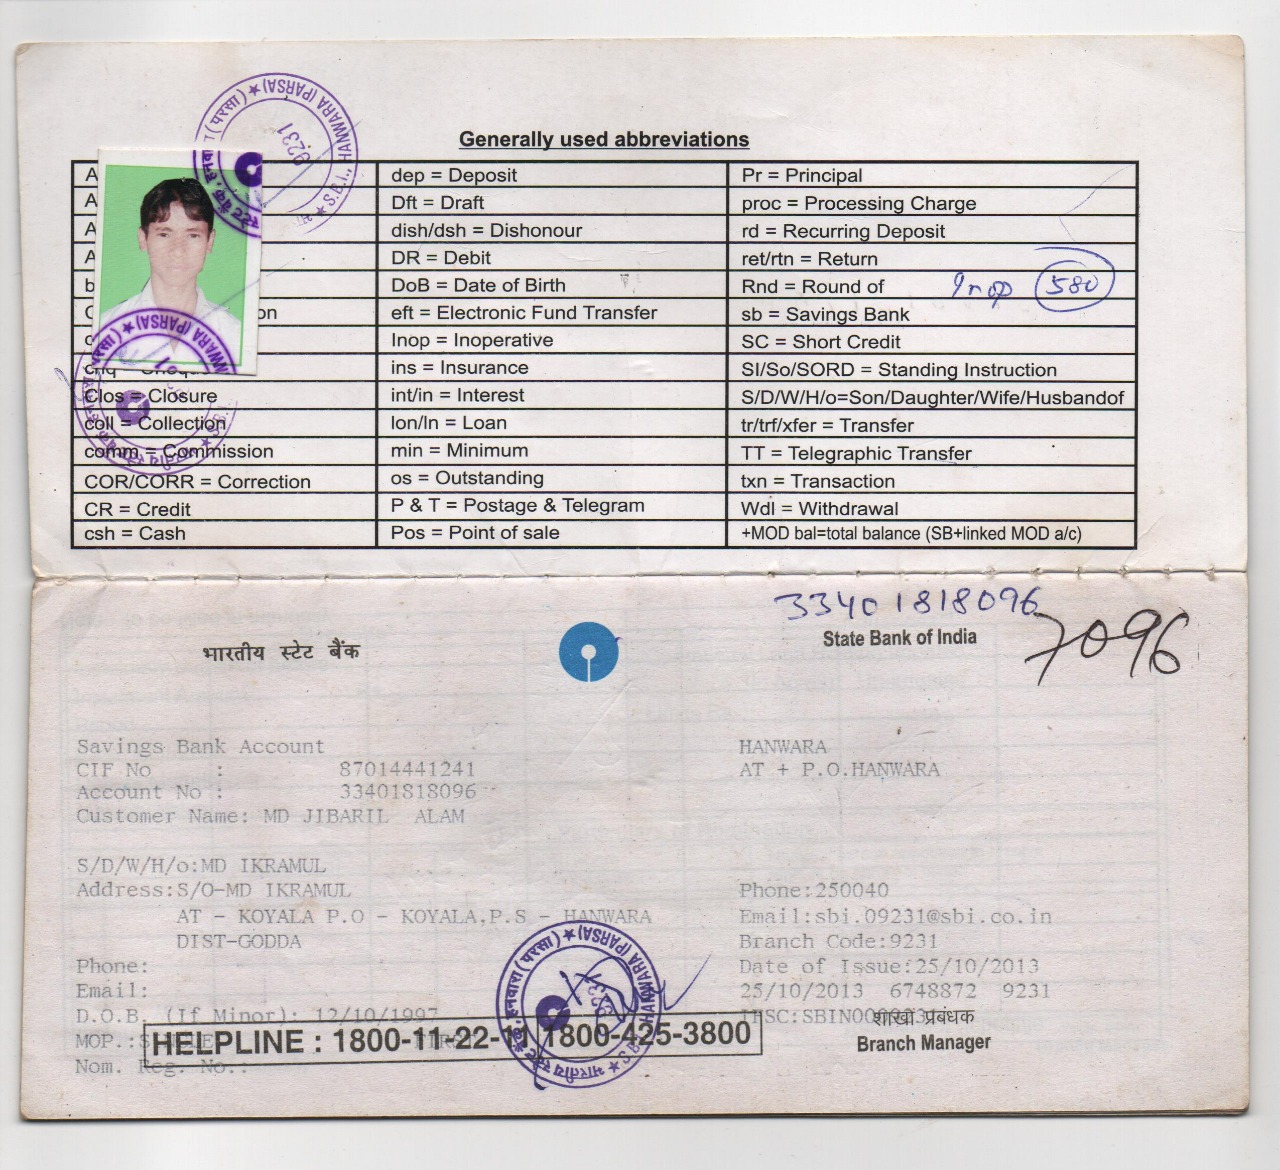 Generally used abbreviations
dep = Deposit
Pr = Principal
Dft = Draft
proc = Processing Charge
dish/dsh = Dishonour
rd = Recurring Deposit
DR = Debit
ret/rtn = Return
DoB = Date of Birth
Rnd = Round of
Inop 580
eft = Electronic Fund Transfer
sb = Savings Bank
Inop = Inoperative
SC = Short Credit
ins = Insurance
SI/So/SORD = Standing Instruction
Clos = Closure
int/in = Interest
S/D/W/H/o=Son/Daughter/Wife/Husbandof
coll = Collection
lon/ln = Loan
tr/trf/xfer = Transfer
comm = Commission
min = Minimum
TT = Telegraphic Transfer
COR/CORR = Correction
os = Outstanding
txn = Transaction
CR = Credit
P & T = Postage & Telegram
Wdl = Withdrawal
csh = Cash
Pos = Point of sale
+MOD bal=total balance (SB+linked MOD a/c)
S.B.I., HANWARA (PARSA)
9231
33401818096
7096
भारतीय स्टेट बैंक
State Bank of India
Savings Bank Account
HANWARA
CIF No : 87014441241
AT + P.O.HANWARA
Account No : 33401818096
Customer Name: MD JIBARIL ALAM
S/D/W/H/o:MD IKRAMUL
Address:S/O-MD IKRAMUL
Phone:250040
AT - KOYALA P.O - KOYALA,P.S - HANWARA
Email:sbi.09231@sbi.co.in
DIST-GODDA
Branch Code:9231
Phone:
Date of Issue:25/10/2013
Email:
25/10/2013 6748872 9231
D.O.B. (If Minor): 12/10/1997
शाखा प्रबंधक
MOP.:
HELPLINE : 1800-11-22-11 1800-425-3800
Branch Manager
Nom. Reg. No.:
S.B.I., HANWARA (PARSA)
9231